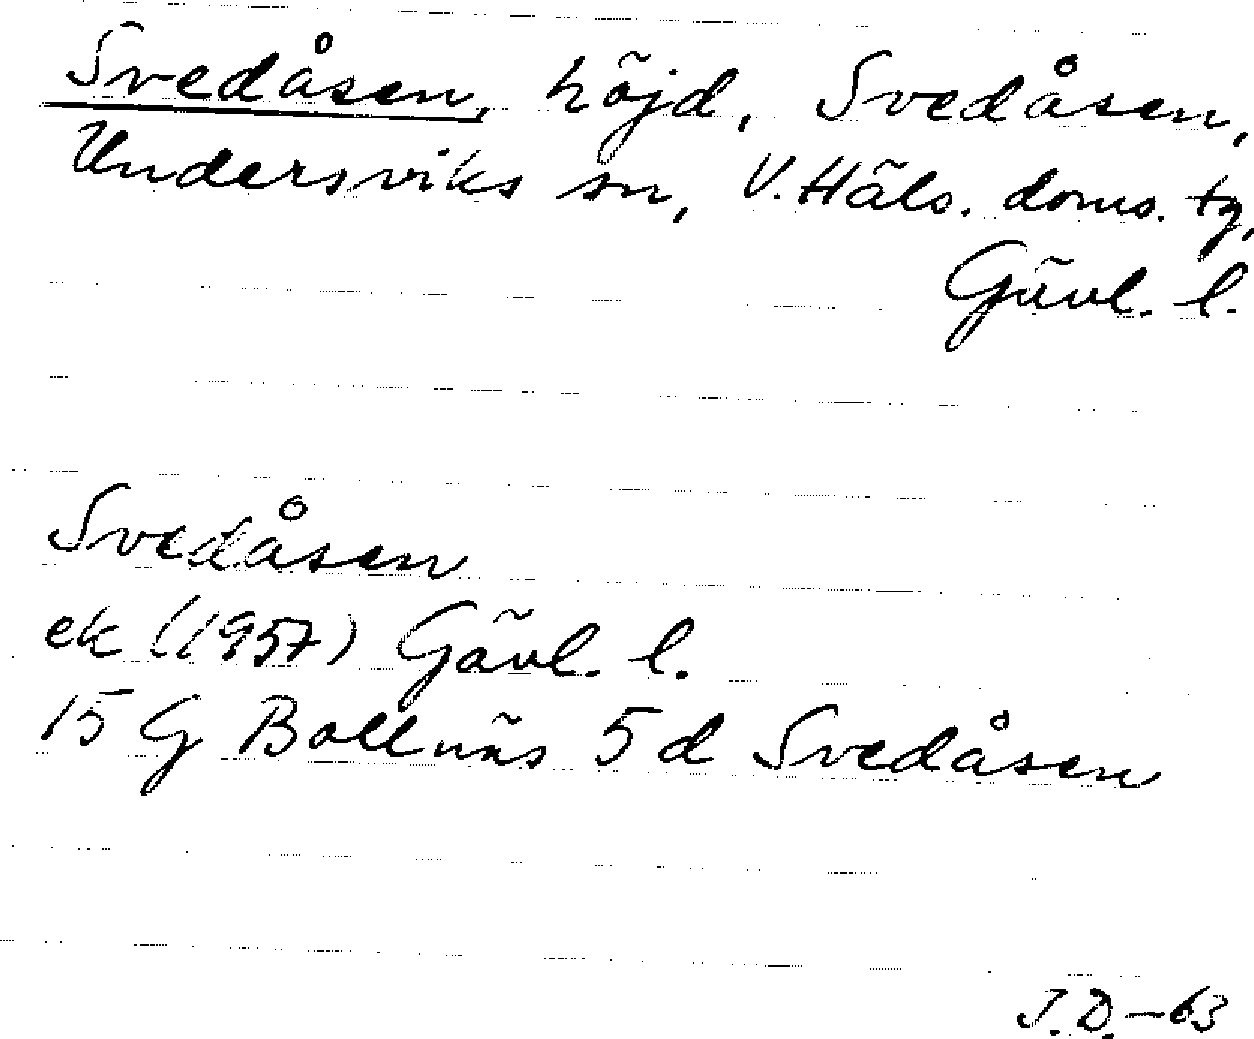 Svedåsen, höjd, Svedåsen,
Undersviks sn, V. Häls. doms. tg,
Gävl. l.
Svedåsen
ek (1957) Gävl. l.
15 G Bollnäs 5 d Svedåsen
J.D.-63